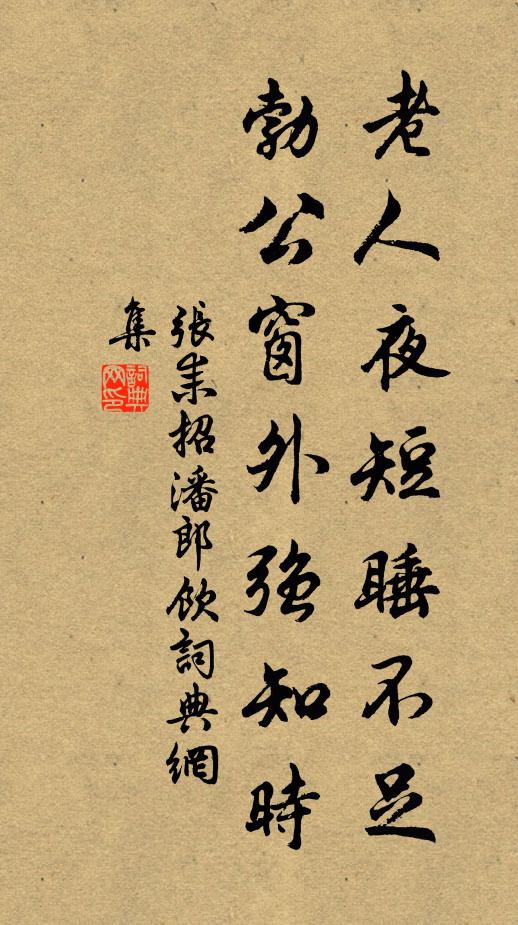 老人夜短睡不足
勃公窗外強知時
張耒招潘郎飲詞典網
集
詞典
网印